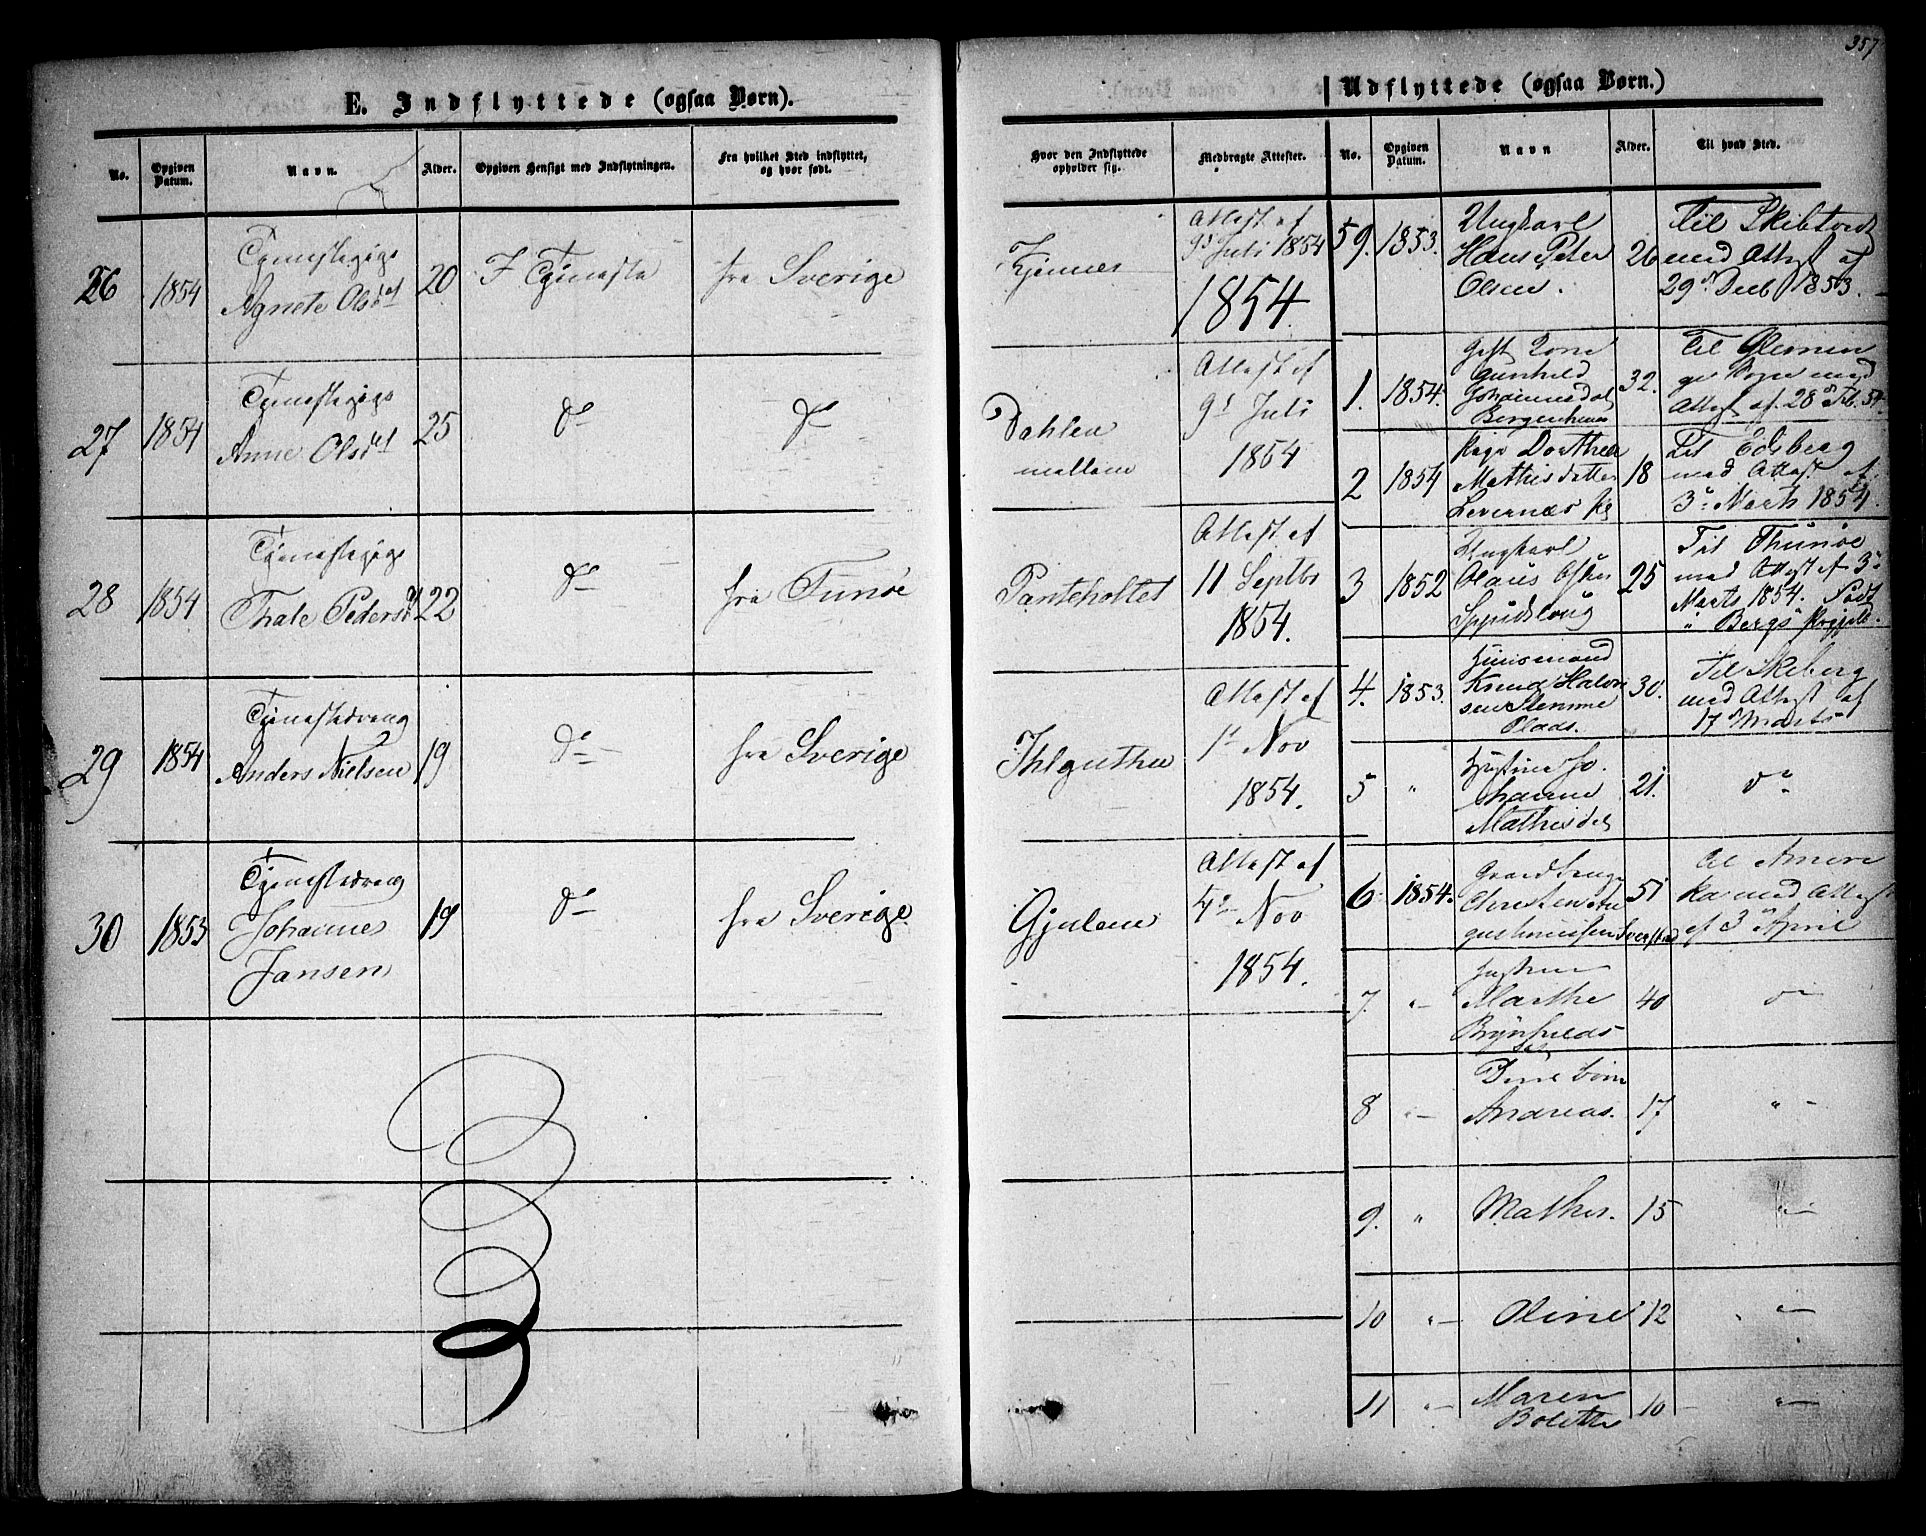 357
E. Indflyttede (ogsaa Børn).
No.
Opgiven Datum.
Navn.
Alder.
Opgiven Hensigt med Indflytningen.
Fra hvilket Sted indflyttet, og hvor født.
Hvor den Indflyttede opholder sig.
Medbragte Attester.
26
1854
Tjenestepige
Agnete Olsdt
20
I Tjeneste
fra Sverige
Kjennes
Attest af
9d Juli 1854
1854.
27
1854
Tjenestepige
Anne Olsdt
25
do
do
Dahlen
mellem
Attest af
9d Juli
1854
28
1854
Tjenestepige
Thale Pedersdt
22
do
fra Tunøe
Panteholtet
Attest af
11 Septbr
1854.
29
1854
Tjenestedreng
Anders Nielsen
19
do
fra Sverige
Attest af
1ste Nov
1854.
30
1853
Tjenestedreng
Johannes
Jansen
19
do
fra Sverige.
Attest af
4de Nov
1854.
Udflyttede (ogsaa Børn.)
No.
Opgiven Datum.
Navn
Alder.
Til hvad Sted.
59.
1853.
Ungkarl
Hans Peter
Olsen.
26
Til Skibtvedt
med Attest af
29d Decb 1853.
1.
1854.
Gift Kone
Gunhild
Johannesdat
32.
Til Glemmen
med
Attest af 28d Feb. 54.
2
1854
Pige Dorthea
Mathisdatter
18
Til Edsberg
med Attest af
3d Marts 1854.
3
1852
Ungkarl
Olaus
25
Til Thunøe
med Attest af 3d
Marts 1854. Født
i Bergs Prgjeld.
4.
1853.
Huusmand
Knud Halvor
sen
30.
Til Skeberg
med Attest af
17 Marts
5
"
Hustrue Jo
hanne
Mathisdat
21.
do
6
1854.
Gaardbruger
Christen Au
gustinussen
51
til Ameri
ka med Attest
af 3d April
7.
"
Hustru
Marthe
Brynhilds
dat
40
do
8
"
Deres børn
Andreas.
17
"
9.
"
Mathis.
15
"
10
"
Oline
12
"
11
"
Maren
Bolette
10
"